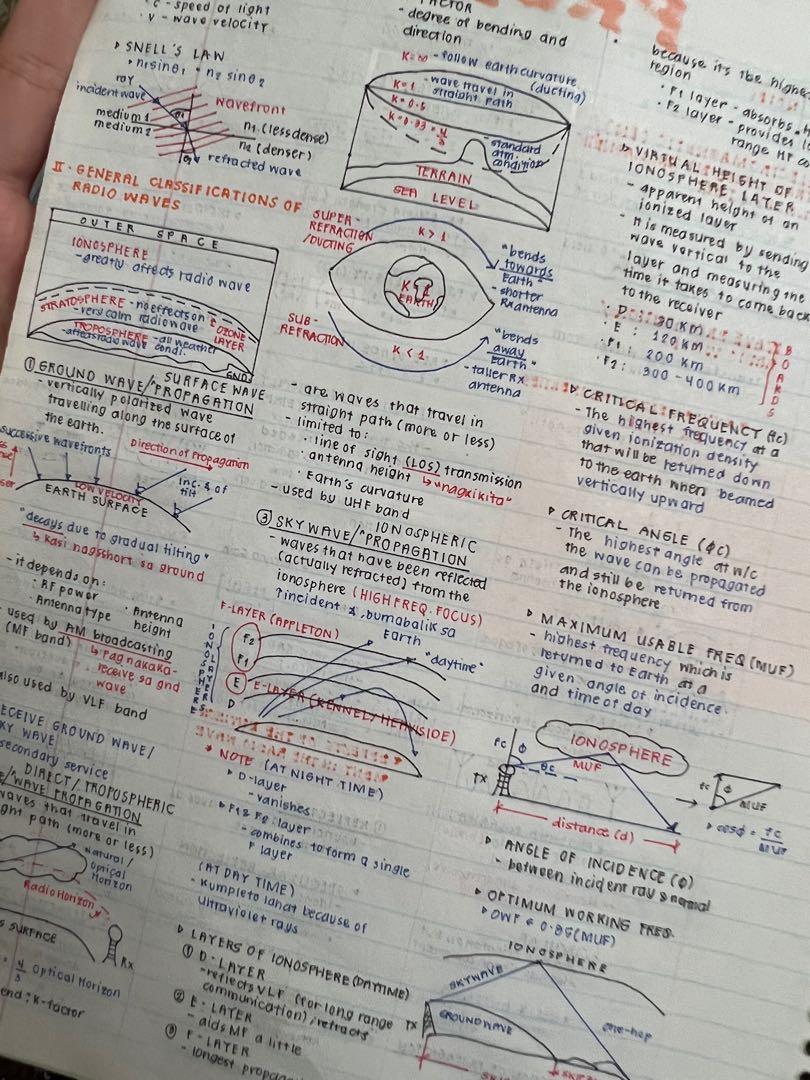 c - speed of light
v - wave velocity
▸ SNELL'S LAW
▹ n1sinθ1 = n2 sinθ2
ray
incident wave
wavefront
medium1
medium2
θ1
n1 (less dense)
n2 (denser)
θ2
refracted wave
II. GENERAL CLASSIFICATIONS OF
RADIO WAVES
OUTER SPACE
IONOSPHERE
- greatly affects radio wave
STRATOSPHERE - no effects on
- very calm radio wave
OZONE
LAYER
TROPOSPHERE - all weather
- affects radio wave condi.
GND
① GROUND WAVE/ SURFACE WAVE PROPAGATION
- vertically polarized wave
travelling along the surface of
the earth.
successive wavefronts
Direction of propagation
LOW VELOCITY
EARTH SURFACE
Inc. & of
tilt
"decays due to gradual tilting"
↳ kasi nagsshort sa ground
- it depends on:
· RF power
· Antenna
height
· Antenna type
used by AM broadcasting
(MF band)
↳ pag nakaka-
receive sa gnd
wave
also used by VLF band
RECEIVE GROUND WAVE/
SKY WAVE
secondary service
DIRECT / TROPOSPHERIC
WAVE PROPAGATION
waves that travel in
path (more or less)
Natural/
Optical
Horizon
Radio Horizon
SURFACE
Rx
= 4/3 Optical Horizon
k-factor
FACTOR
- degree of bending and
direction
K=∞ - follow earth curvature
(ducting)
K=1 - wave travel in
straight path
K=0.5
K=0.33 = 4/3
- standard
atm.
condition
TERRAIN
SEA LEVEL
SUPER-
REFRACTION
/DUCTING
K > 1
"bends
towards
Earth"
- shorter
Rx antenna
K=1
EARTH
SUB-
REFRACTION
K < 1
"bends
away
Earth"
- taller Rx
antenna
- are waves that travel in
straight path (more or less)
- limited to:
· line of sight (LOS) transmission
· antenna height ↳ "nagkikita"
· Earth's curvature
- used by UHF band
③ SKY WAVE/ IONOSPHERIC PROPAGATION
- waves that have been reflected
(actually refracted) from the
ionosphere (HIGH FREQ. FOCUS)
↑incident ∡, bumabalik sa
Earth
F-LAYER (APPELTON)
IONOSPHERE
LAYERS
F2
F1
E
D
"daytime"
E-LAYER (KENNELY HEAVISIDE)
* NOTE (AT NIGHT TIME)
▹ D-layer
- vanishes
▹ F1 & F2 layer
- combines to form a single
F layer
(AT DAY TIME)
- kumpleto lahat because of
ultraviolet rays
▹ LAYERS OF IONOSPHERE (DAYTIME)
① D-LAYER
- reflects VLF (for long range
communication) / refracts
② E-LAYER
- aids MF a little
③ F-LAYER
- longest
because its the highest
region
· F1 layer - absorbs
· F2 layer - provides
range HF
▹ VIRTUAL HEIGHT OF
IONOSPHERIC LAYER
- apparent height of an
ionized layer
- It is measured by sending
wave vertical to the
layer and measuring the
time it takes to come back
to the receiver
· D: 30 km
· E: 120 km
· F1: 200 km
· F2: 300 - 400 km
BOARDS
▹ CRITICAL FREQUENCY (fc)
- The highest frequency at a
given ionization density
that will be returned down
to the earth when beamed
vertically upward
▹ CRITICAL ANGLE (ϕc)
- The highest angle at w/c
the wave can be propagated
and still be returned from
the ionosphere
▹ MAXIMUM USABLE FREQ (MUF)
- highest frequency which is
returned to Earth at a
given angle of incidence
and time of day
IONOSPHERE
fc
ϕ
θc
MUF
TX
distance (d)
fc
ϕ
MUF
▹ cosϕ = fc/MUF
▹ ANGLE OF INCIDENCE (ϕ)
- between incident ray & normal
▸ OPTIMUM WORKING FREQ.
▹ OWF = 0.85(MUF)
IONOSPHERE
SKYWAVE
GROUNDWAVE
TX
one-hop